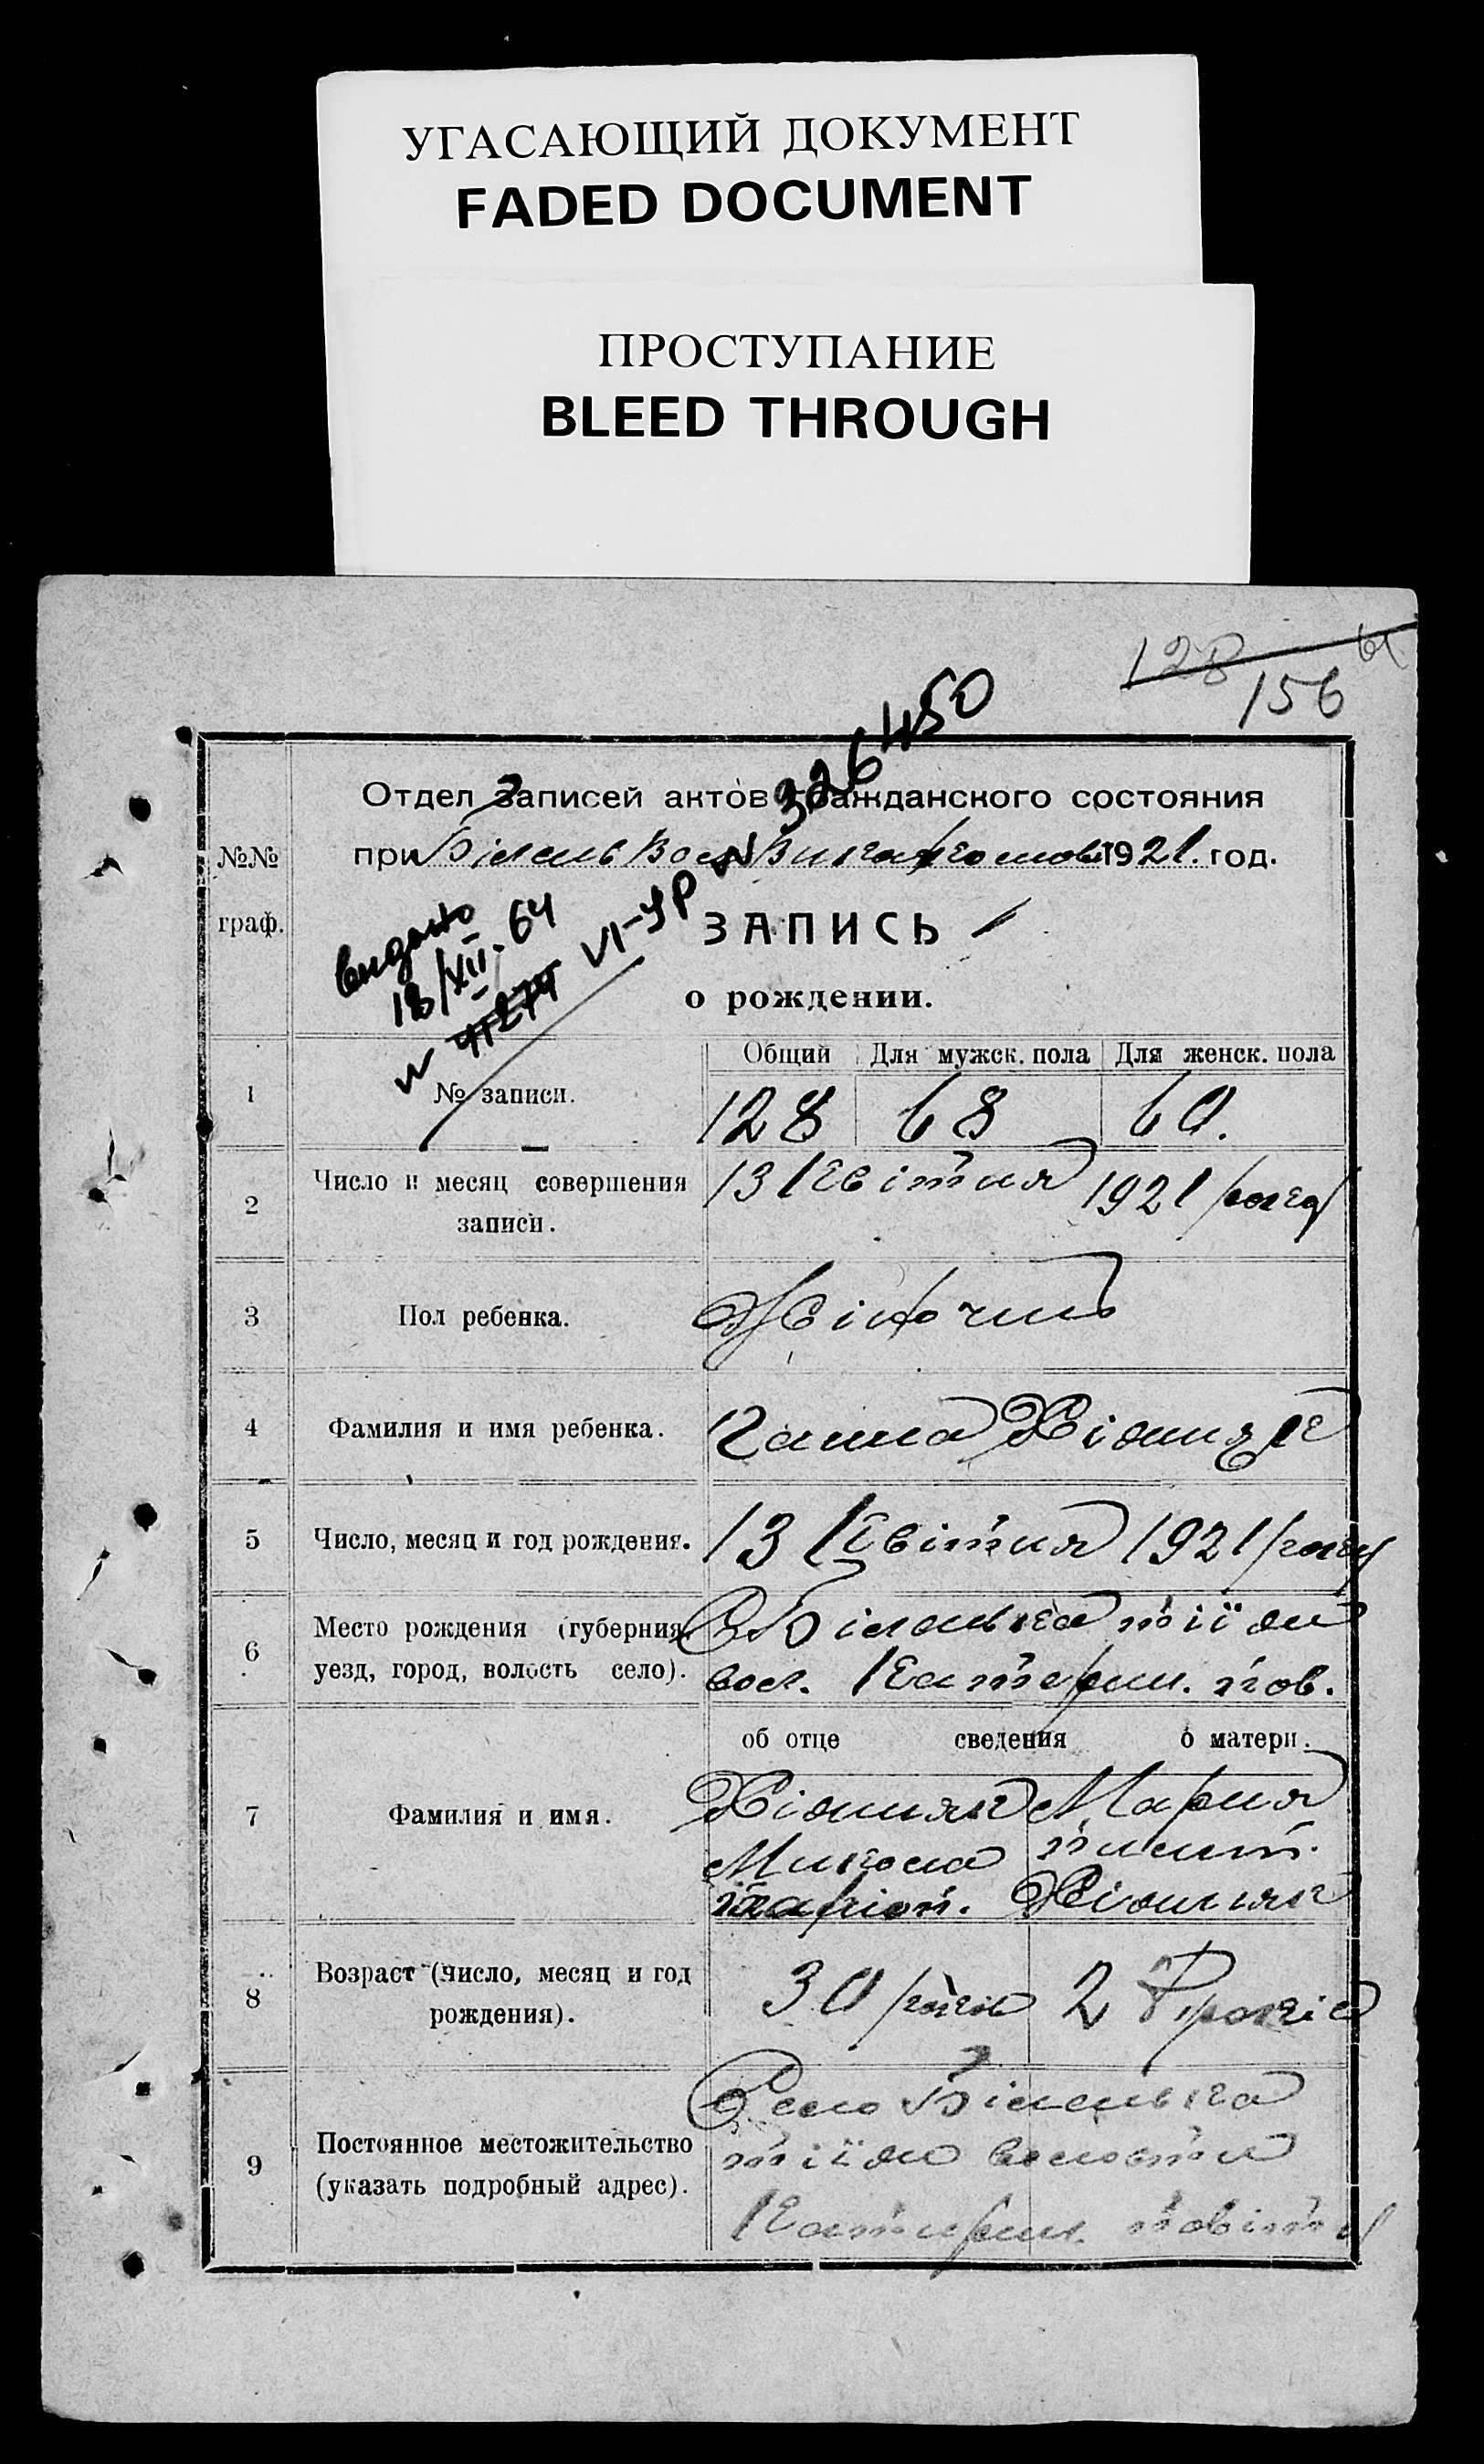 УГАСАЮЩИЙ ДОКУМЕНТ
FADED DOCUMENT
ПРОСТУПАНИЕ
BLEED THROUGH
128
156
326450
Отдел Записей актов гражданского состояния
при Білень Вол. 1921. год.
№№
граф.
видано
18/XII-64
VI-УР N
N 41274
ЗАПИСЬ
о рождении.
Общий Для мужск. пола Для женск. пола
1 № записи. 128 68 60.
2 Число и месяц совершения 13 Квітня 1921 року
записи.
3 Пол ребенка. Жіноча
4 Фамилия и имя ребенка. Ганна Хіжняк
5 Число, месяц и год рождения. 13 Квітня 1921 року
6 Место рождения (губерния, С Біленька тіїж
уезд, город, волость село). вол. Катерин. пов.
об отце сведения о матери.
7 Фамилия и имя. Хіжняк Мария
Микола
Хіжняк
8 Возраст (число, месяц и год 30 років 27 років
рождения).
Село Біленька
9 Постоянное местожительство тіїж волости
(указать подробный адрес).
Катерин. повіту